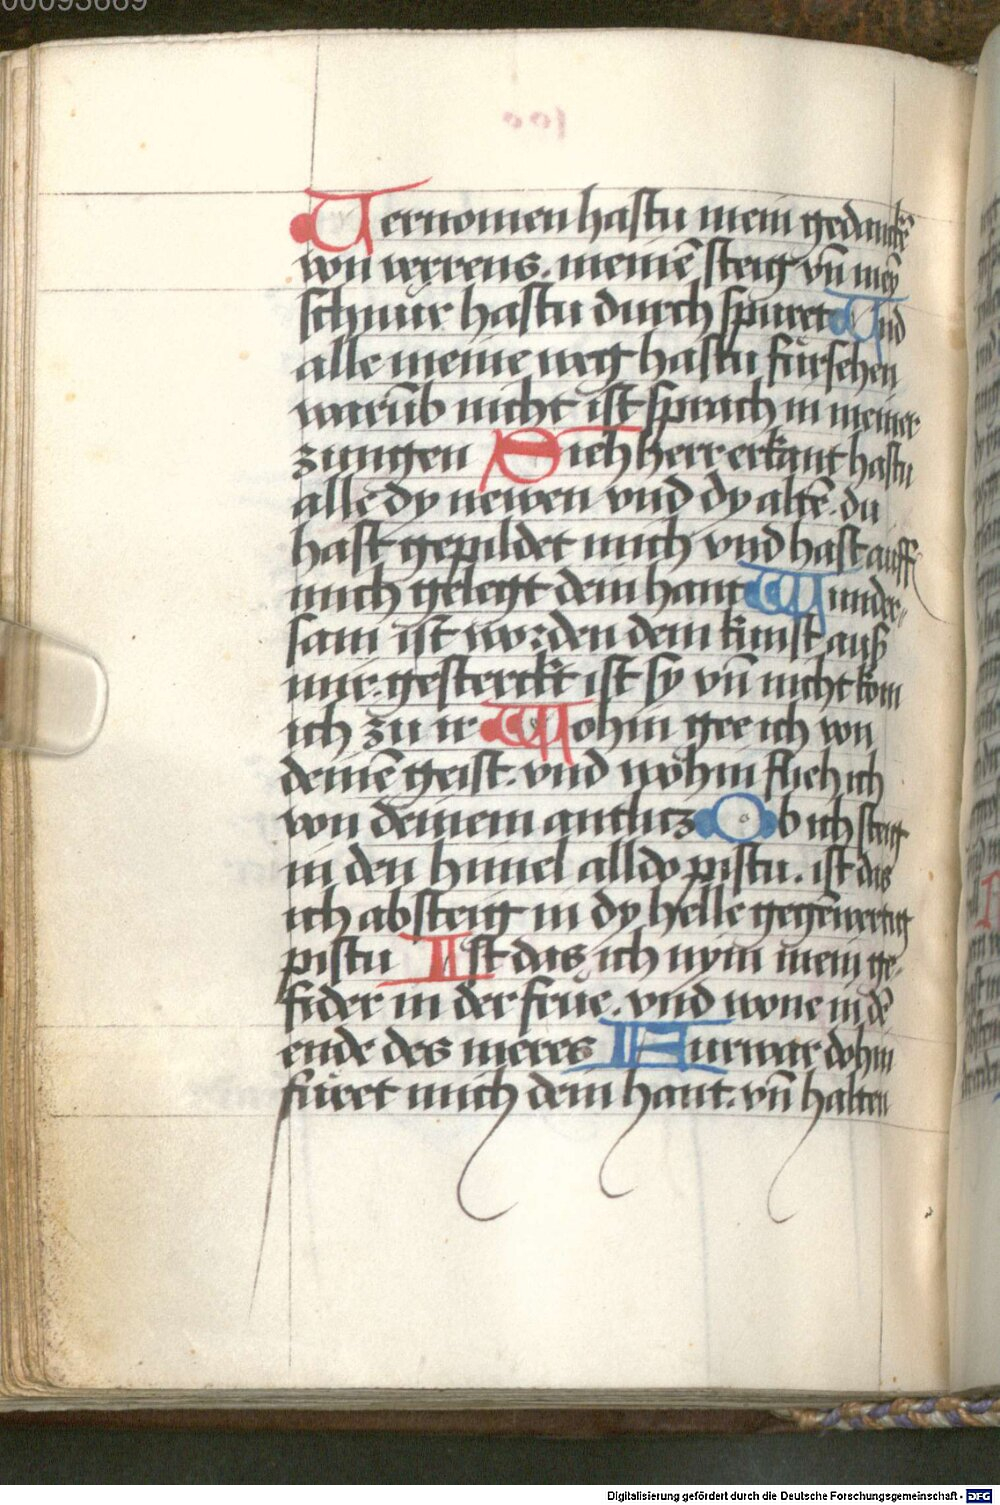 00093669
Uernomen hastu mein gedanckē
von verrens. meinē steig vn̄ meȳ
schnuͤr hastu durch spuret Und
alle meine weg hastu fuͤrsehen
warūb nicht ist sprach in meiner
zungen Sich herr erkant hastu
alle dy newen vnd dy altē. du
hast gepildet mich vnd hast auff
mich gelegt dein hant Wunder-
sam ist worden dein kunst auß
mir. gesterckt ist sy vn̄ nicht kom
ich zu ir Wohin gee ich von
deinē geist. vnd wohin fleich ich
von deinem antlicz Ob ich steig
in den himel alldo pistu. ist das
ich absteig in dy helle gegēwertig
pistu Ist das ich nym mein ge-
fider in der frue. vnd wone in dē
ende des meres Furwar dohin
fuͤret mich dein hant. vn̄ halten
Digitalisierung gefördert durch die Deutsche Forschungsgemeinschaft - DFG